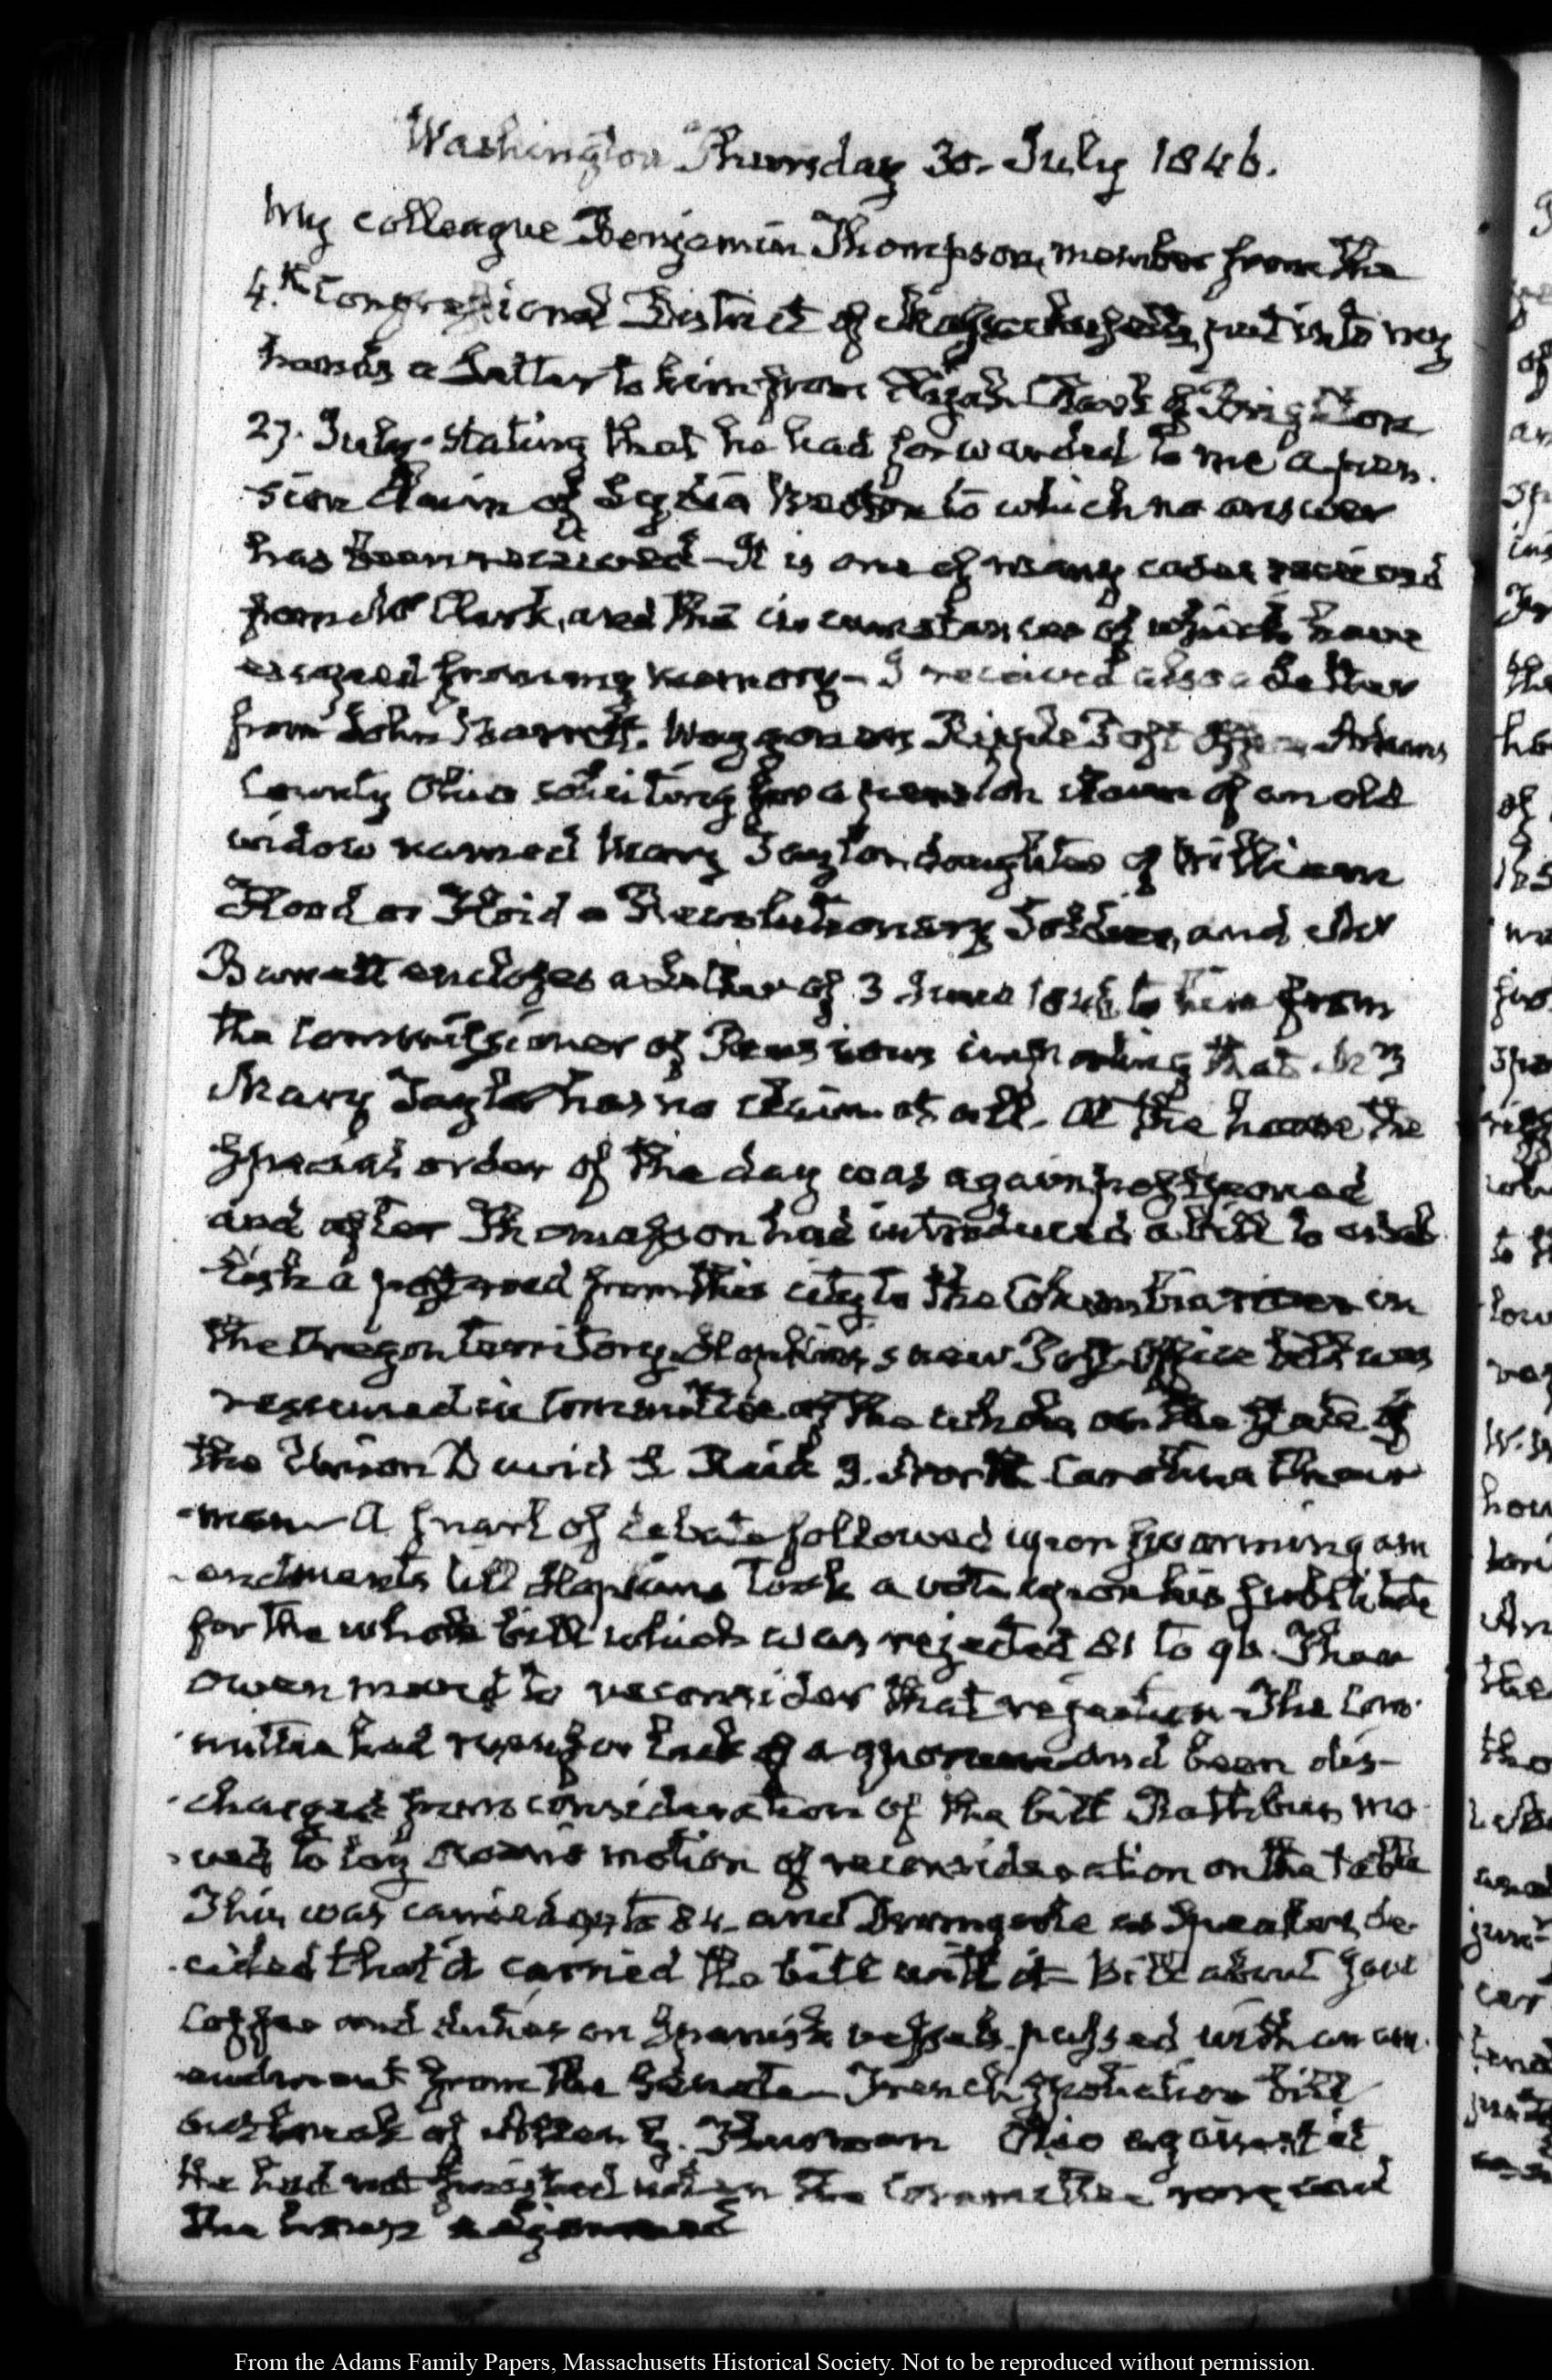 Washington Thursday 30. July 1846.
My colleague Benjamin Thompson, member from the
4.th Congressional District of Massachusetts, put into my
hands a Letter to him from Clark of
27. July. stating that he had forwarded to me a pen-
sion claim of Lydia to which no answer
has been received — It is one of many cases received
from Mr Clark, and the circumstances of which have
escaped from my memory — I received also a Letter
from John Barrett. Waggoners Ripple Post Office, Adams
County Ohio soliciting for a pension claim of an old
widow named Mary Taylor, daughter of William
Flood or Floid a Revolutionary Soldier, and Mr
Barrett encloses a Letter of 3 June 1846 to him from
the Commissioner of Pensions informing that Mrs
Mary Taylor has no claim at all. At the house the
special order of the day was again postponed
and after Thomasson had introduced a bill to estab-
lish a road from this city to the Columbia river in
the Oregon territory. Hopkins's new Post-Office bill was
resumed in Committee of the whole, on the State of
the Union David S. Reid J. North Carolina Chair-
man — A snarl of debate followed upon squirming am-
endments till Hopkins took a vote upon his substitute
for the whole bill which was rejected 81 to 96. Then
Owen moved to reconsider that rejection. The Com-
mittee had risen for lack of a quorum and been dis-
charged from consideration of the bill Rathbun mo-
ved to lay Owen's motion of reconsideration on the table
This was carried to 84. and Dromgoole as Speaker, de-
cided that it carried the bill with it — Bill about Java
Coffee and duties on Spanish vessels passed with an am-
endment from the Senate — French Spoliation bill
outbreak of Allen G. Thurman Ohio against it
He had not finished when the Committee rose and
the house adjourned
From the Adams Family Papers, Massachusetts Historical Society. Not to be reproduced without permission.